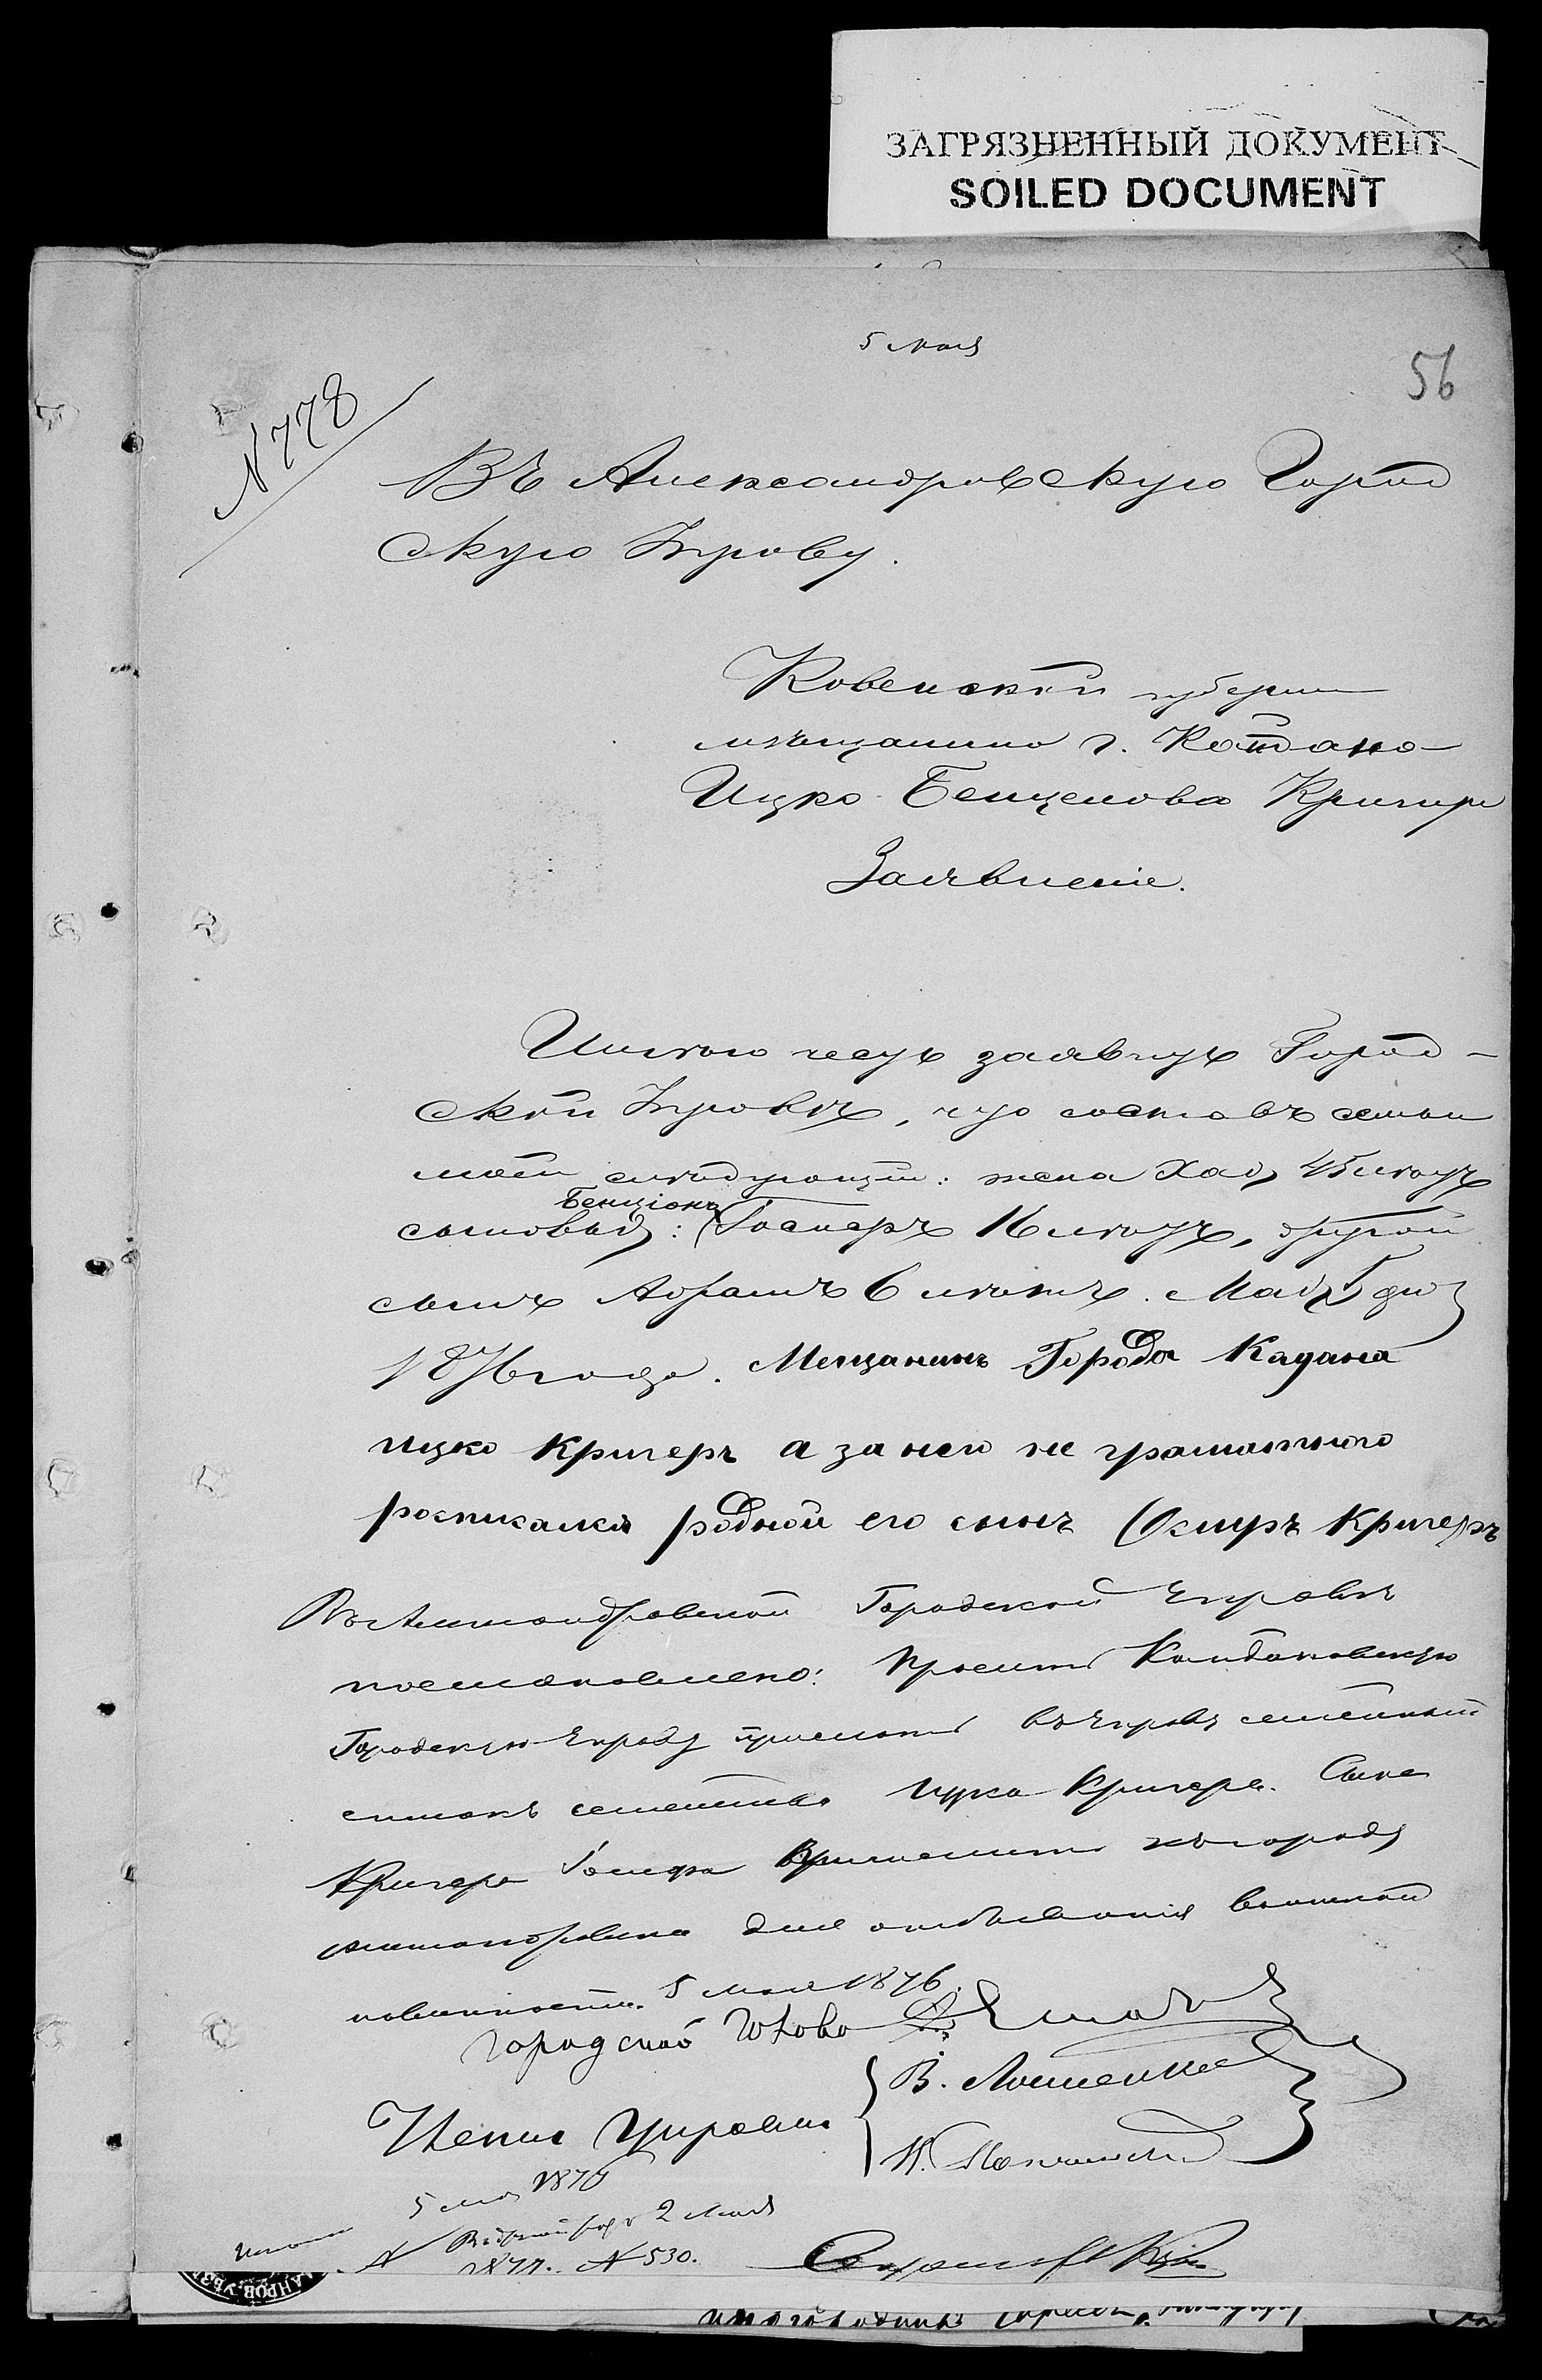 ЗАГРЯЗНЕННЫЙ ДОКУМЕНТ
SOILED DOCUMENT
5 мая
56
N 778
Въ Александровскую Город
скую Управу.
Ковенской губерніи
мѣщанина г.
Ицко Бенцелова Кригера
Заявленіе.
Имѣю честь заявить Город-
ской Управѣ, что составъ семьи
моей слѣдующій: жена Хая 45 лѣтъ
Бенціонъ
сыновья: Іосперъ 16 лѣтъ, другой
сынъ Абрамъ 6 лѣтъ. Мая 5 дня
1876 года. Мещанинъ Города Кадана
ицко Кригеръ а за него не грамотного
росписался родной его сынъ Осиръ Кригеръ
Въ Александровской Городской Управѣ
постановлено: Просить
Городскую Управу прислать въ Управу семейный
списокъ семейства Ицка Кригера. Сына
Кригера Іосифа къ городу
для отбыванія воинской
повинности. 5 мая 1876.
Городской Голова
Члены Управы
В.
И.
5 мая 1876
2 мая
1877. N 530.
Секретарь